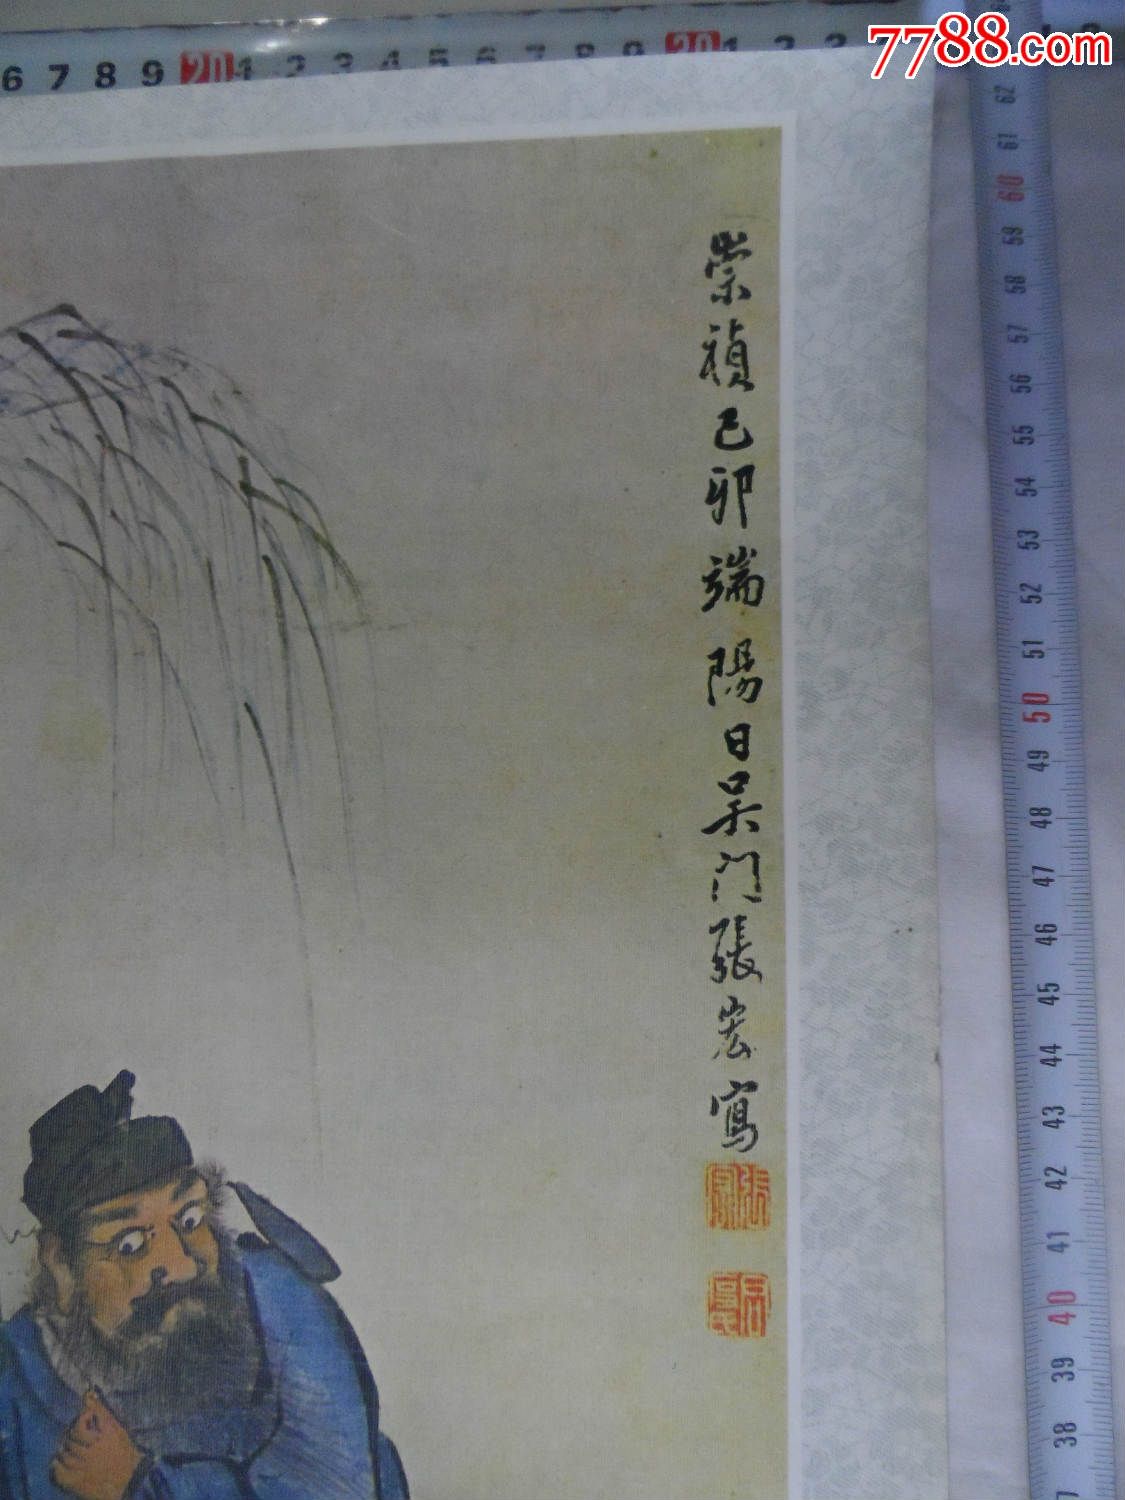 7788.com
6 7 8 9 20 1 2 3 4 5 6 7 8 9 30 1 2 3
崇禎己卯端陽日吳门張宏寫
62
61
60
59
58
57
56
55
54
53
52
51
50
49
48
47
46
45
44
43
42
41
40
39
38